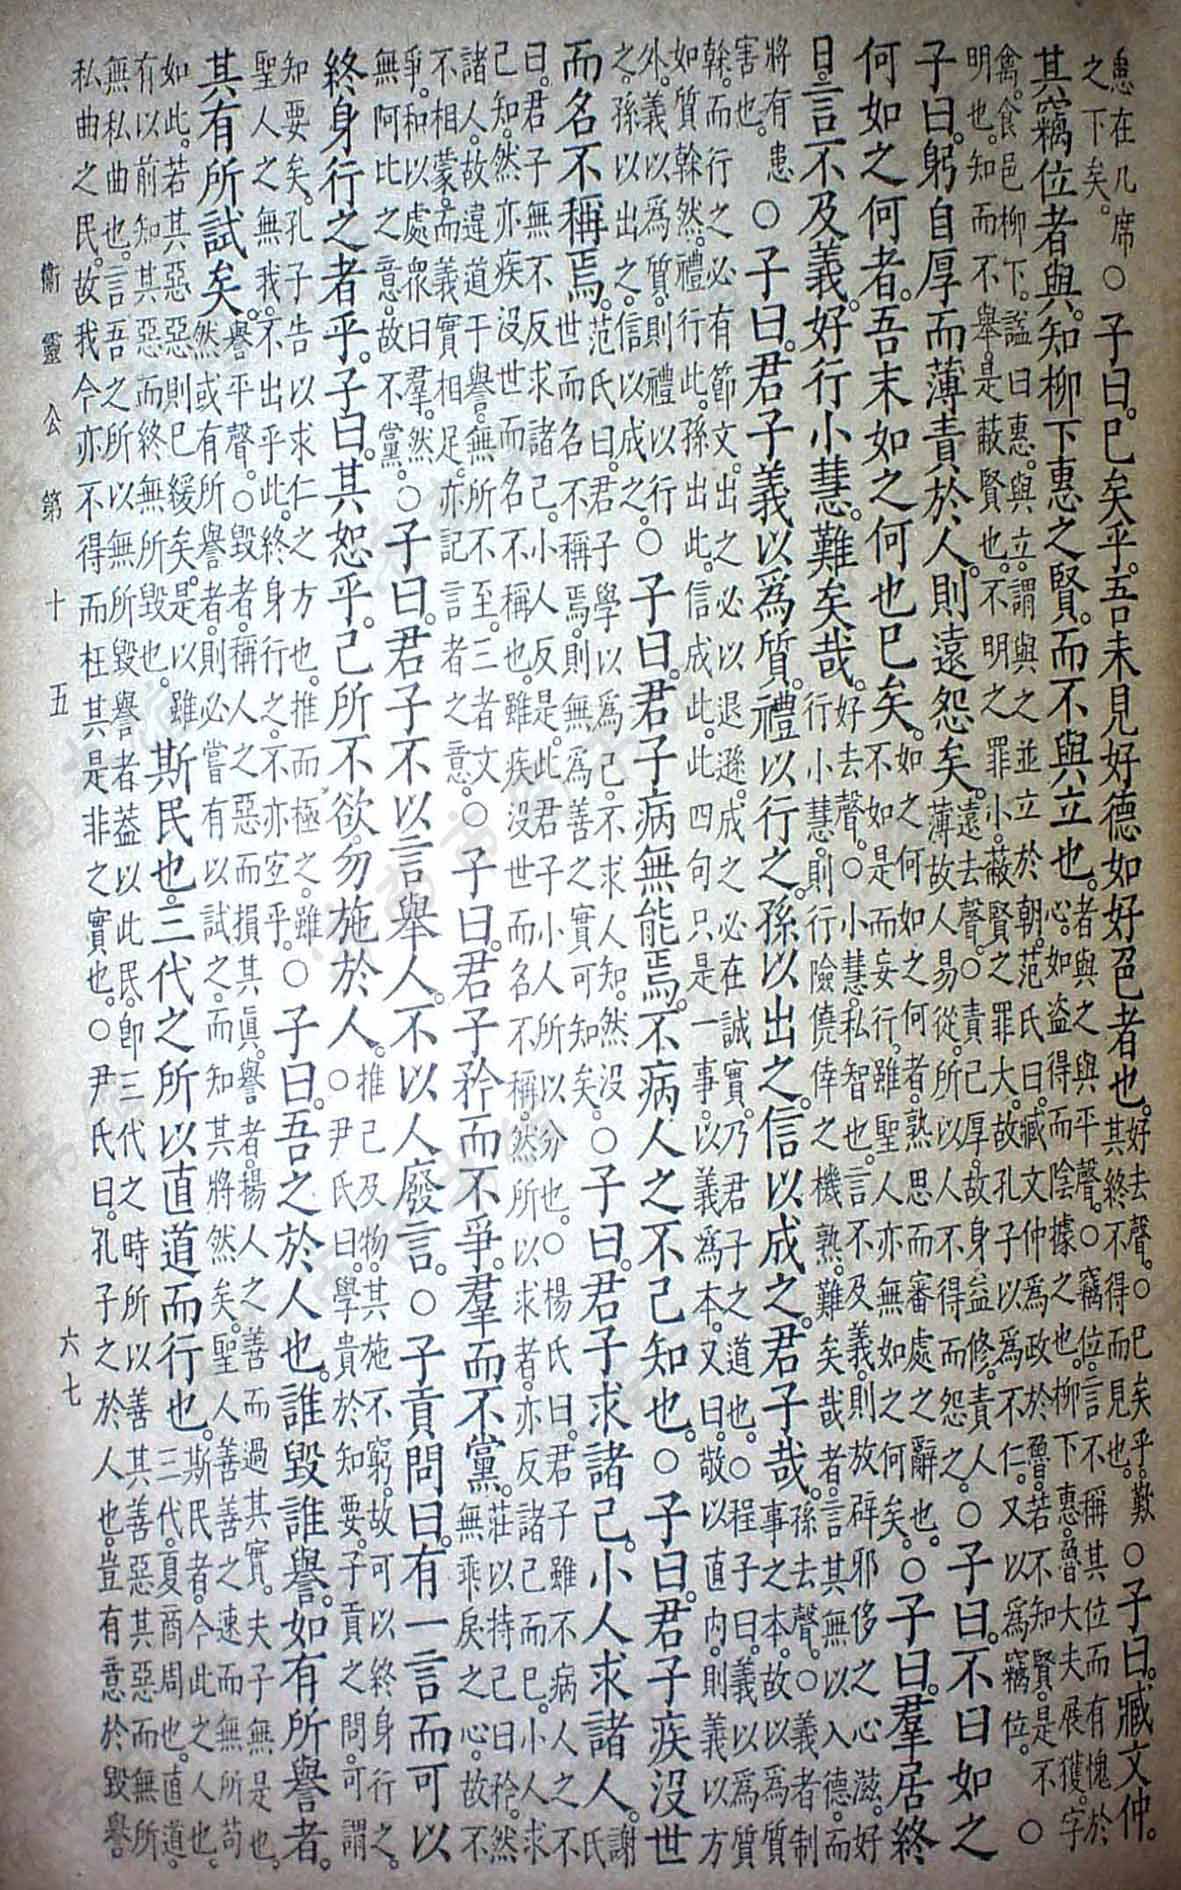 患在几席之下矣。○子曰。已矣乎。吾未見好德如好色者也。好去聲。○已矣乎。歎其終不得而見也。○子曰。臧文仲。
其竊位者與。知柳下惠之賢。而不與立也。者與之與平聲。○竊位。言不稱其位而有愧於心。如盜得而陰據之也。柳下惠。魯大夫展獲。字
禽。食邑柳下。謚曰惠。與立。謂與之並立於朝。范氏曰。臧文仲爲政於魯。若不知賢。是不明也。知而不舉。是蔽賢也。不明之罪小。蔽賢之罪大。故孔子以爲不仁。又以爲竊位。○
子曰。躬自厚而薄責於人。則遠怨矣。遠去聲。○責己厚。故身益修。責人薄。故人易從。所以人不得而怨之。○子曰。不曰如之
何如之何者。吾末如之何也已矣。如之何如之何者。熟思而審處之辭也。不如是而妄行。雖聖人亦無如之何矣。○子曰。羣居終
日。言不及義。好行小慧。難矣哉。好去聲。○小慧。私智也。言不及義。則放辟邪侈之心滋。好行小慧。則行險僥倖之機熟。難矣哉者。言其無以入德。而
將有患害也。○子曰。君子義以爲質。禮以行之。孫以出之。信以成之。君子哉。孫去聲。○義者制事之本。故以爲質
幹。而行之必有節文。出之必以退遜。成之必在誠實。乃君子之道也。○程子曰。義以爲質。如質幹然。禮行此。孫出此。信成此。此四句只是一事。以義爲本。又曰。敬以直內。則義以方
外。義以爲質。則禮以行之。孫以出之。信以成之。○子曰。君子病無能焉。不病人之不己知也。○子曰。君子疾沒世
而名不稱焉。范氏曰。君子學以爲己。不求人知。然沒世而名不稱焉。則無爲善之實可知矣。○子曰。君子求諸己。小人求諸人。謝氏
曰。君子無不反求諸己。小人反是。此君子小人所以分也。○楊氏曰。君子雖不病人之不己知。然亦疾沒世而名不稱也。雖疾沒世而名不稱。然所以求者。亦反諸己而已。小人求
諸人。故違道干譽。無所不至。三者文不相蒙。而義實相足。亦記言者之意。○子曰。君子矜而不爭。羣而不黨。莊以持己曰矜。然無乖戾之心。故不
爭。和以處衆曰羣。然無阿比之意。故不黨。○子曰。君子不以言舉人。不以人廢言。○子貢問曰。有一言而可以
終身行之者乎。子曰。其恕乎。己所不欲。勿施於人。推己及物。其施不窮。故可以終身行之。○尹氏曰。學貴於知要。子貢之問。可謂
知要矣。孔子告以求仁之方也。推而極之。雖聖人之無我。不出乎此。終身行之。不亦宜乎。○子曰。吾之於人也。誰毀誰譽。如有所譽者。
其有所試矣。譽平聲。○毀者。稱人之惡而損其眞。譽者。揚人之善而過其實。夫子無是也。然或有所譽者。則必嘗有以試之。而知其將然矣。聖人善善之速而無所苟
如此。若其惡惡。則已緩矣。是以雖有以前知其惡。而終無所毀也。斯民也。三代之所以直道而行也。斯民者。今此之人也。三代。夏商周也。直道。
無私曲也。言吾之所以無所毀譽者。蓋以此民。卽三代之時所以善其善惡其惡而無所私曲之民。故我今亦不得而枉其是非之實也。○尹氏曰。孔子之於人也。豈有意於毀譽。
衞靈公第十五
六七